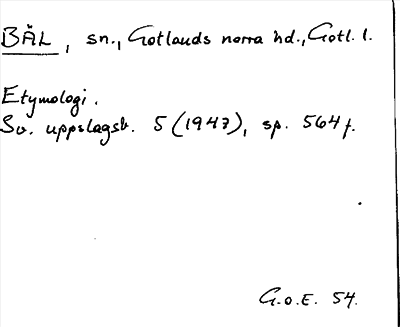 BÄL, sn., Gotlands norra hd., Gotl. l.
Etymologi.
Sv. uppslagsb. 5 (1947), sp. 564 f.
G.o.E. 54.